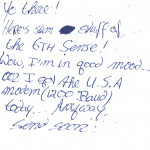 Yo there!
Here's sum stuff of
the 6TH Sense!
Wow, I'm in good mood...
coz I got the U.S.A
modem (1200 Baud)
today... Anyway,
send soon: